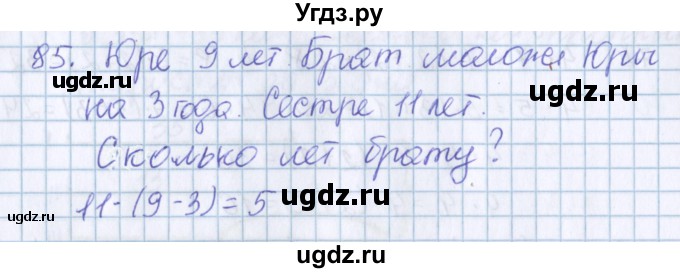 Угдз.ру
85. Юре 9 лет. Брат моложе Юры
на 3 года. Сестре 11 лет.
Сколько лет брату?
11-(9-3)=5
ugdz.ru
ugdz.ru
ugdz.ru
ugdz.ru
ugdz.ru
ugdz.ru
ugdz.ru